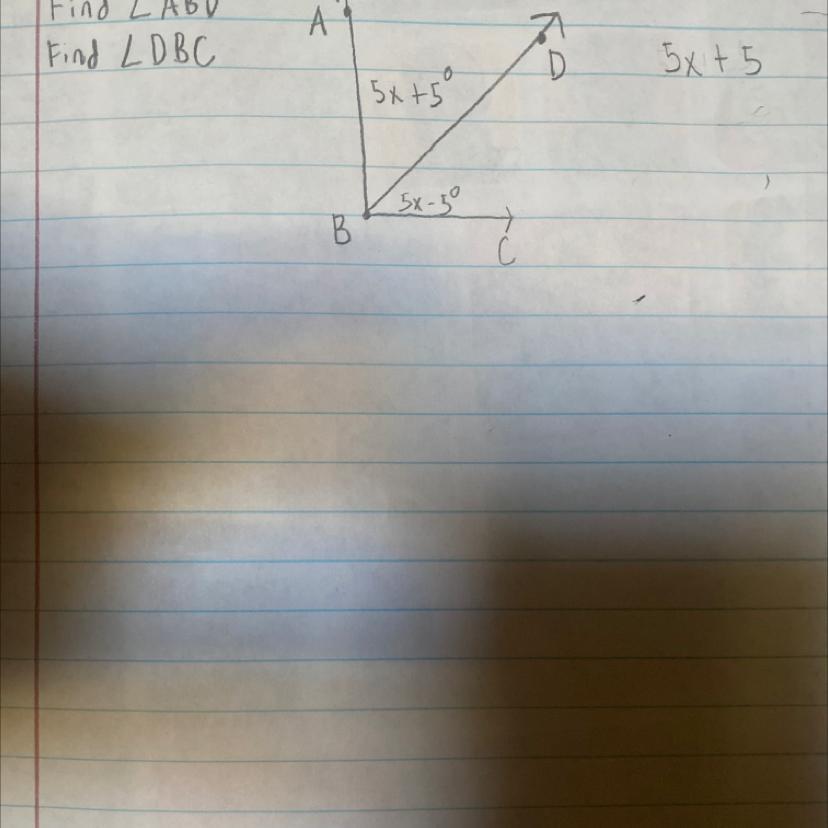 Find ∠ABD
Find ∠DBC
A
D
5x + 5
5x + 5°
5x - 5°
B
C